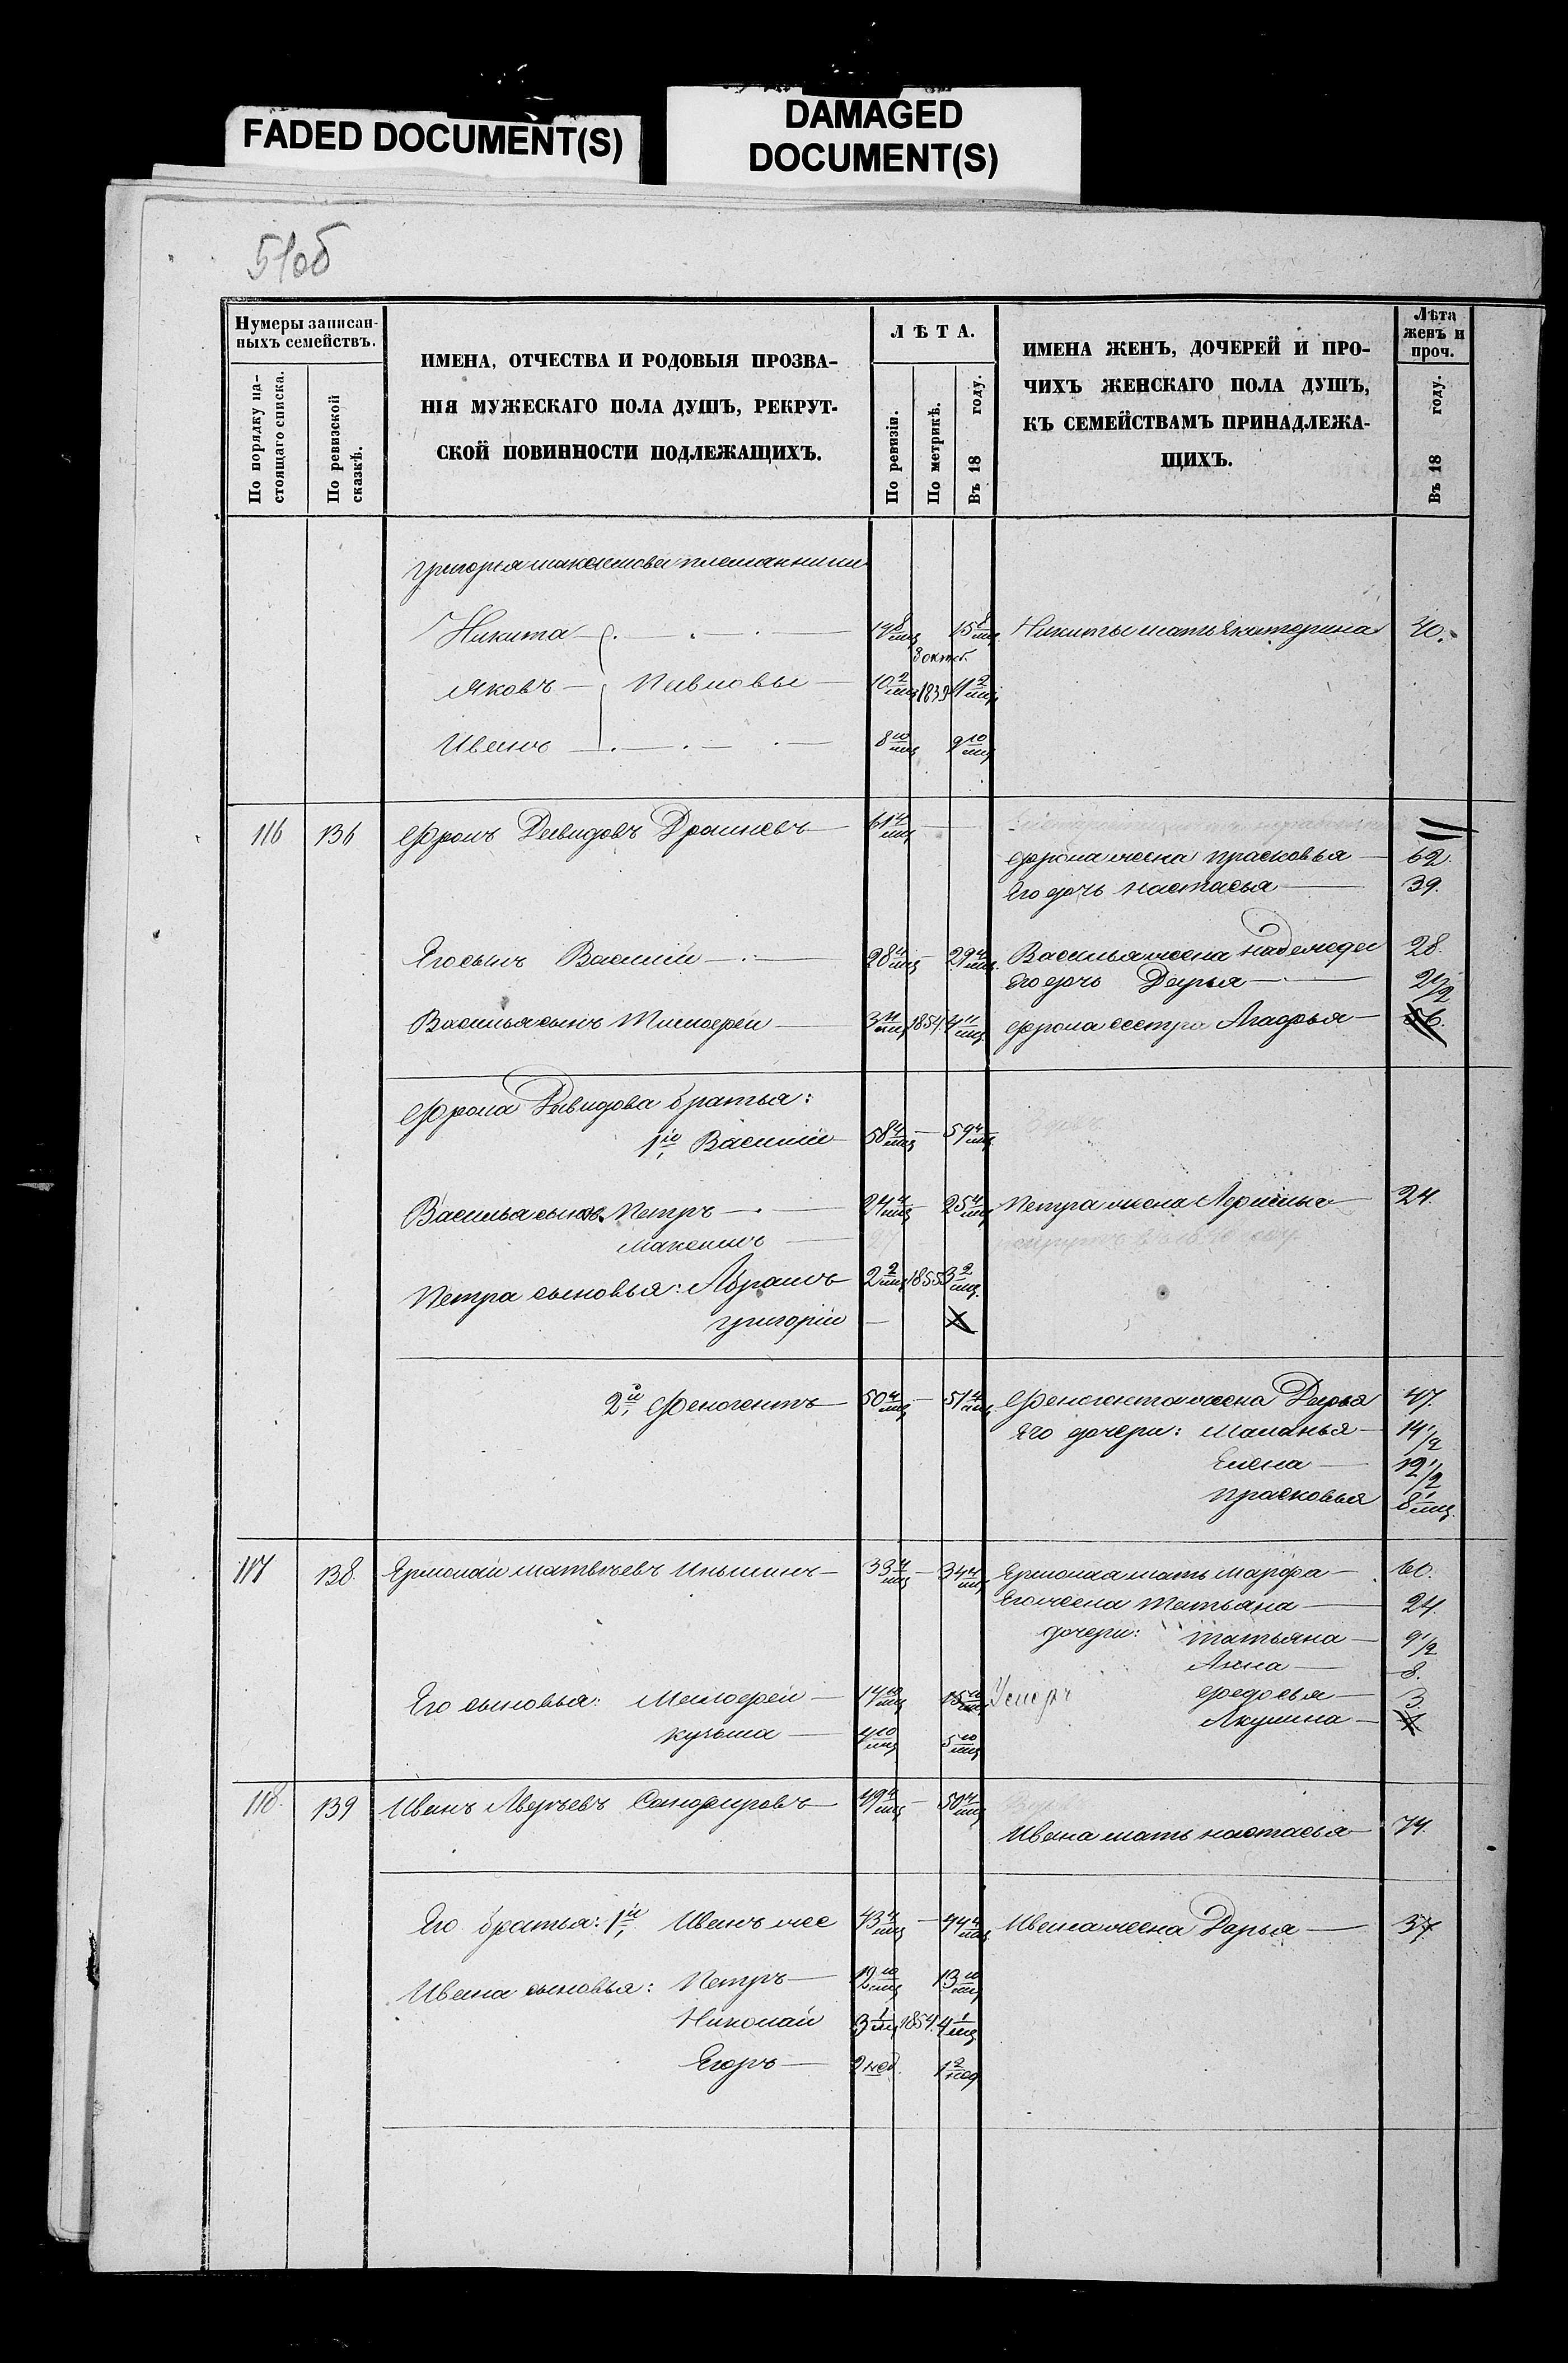 FADED DOCUMENT(S)
DAMAGED
DOCUMENT(S)
51об
Нумеры записан-
ныхъ семействъ.
По порядку на-
стоящаго списка.
По ревизской
сказкѣ.
ИМЕНА, ОТЧЕСТВА И РОДОВЫЯ ПРОЗВА-
НІЯ МУЖЕСКАГО ПОЛА ДУШЪ, РЕКРУТ-
СКОЙ ПОВИННОСТИ ПОДЛЕЖАЩИХЪ.
ЛѢТА.
По ревизіи.
По метрикѣ.
Въ 18 году.
ИМЕНА ЖЕНЪ, ДОЧЕРЕЙ И ПРО-
ЧИХЪ ЖЕНСКАГО ПОЛА ДУШЪ,
КЪ СЕМЕЙСТВАМЪ ПРИНАДЛЕЖА-
ЩИХЪ.
Лѣта
женъ и
проч.
Въ 18 году.
Григорья Максимова племянники
Никита 14 8/мц 15 8/мц Никиты мать Екатерина 40.
3 октяб.
Яковъ Павловы 10 2/мц 1839 11 2/мц
Иванъ 8 10/мц 9 10/мц
116 136 Фролъ Давидовъ 61 4/мц
Фрола жена Прасковья 62.
Его дочь Настасья 39.
Его сынъ Василій 28 4/мц 29 4/мц Василья жена Надежда 28.
Его дочь Дарья 2 1/2
Василья сынъ Тимофей 3 11/мц 1854. 4 11/мц Фрола сестра Агафья 56.
Фрола Давидова братья:
1й, Василій 58 4/мц 59 4/мц
Василья сынъ Петръ 24 4/мц 25 4/мц Петра жена 24.
Максимъ 27
Петра сыновья: Абрамъ 2 2/мц 1855 3 2/мц
Григорій
2й, Феногентъ 50 4/мц 51 4/мц Феногента жена Дарья 47.
Его дочери: Маланья 14 1/2
Елена 12 1/2
Прасковья 8 1/мц
117 138. Ермолай Матвѣевъ Иньшинъ 33 4/мц 34 4/мц Ермолая мать Марфа 60.
Его жена Татьяна 24.
дочери: Татьяна 9 1/2
Анна 8.
Его сыновья: Малофей 14 10/мц 15 10/мц Умеръ Федосья 3
Кузьма 4 10/мц 5 10/мц Акулина 1
118. 139 Иванъ Аверьевъ Санфировъ 49 4/мц 50 4/мц
Ивана мать Настасья 74.
Его братья: 1й, Иванъ же 43 4/мц 44 4/мц Ивана жена Дарья 37.
Ивана сыновья: Петръ 12 10/мц 13 10/мц
Николай 3 1/мц 1854. 4 1/мц
Егоръ 2 нед. 1 2/нед